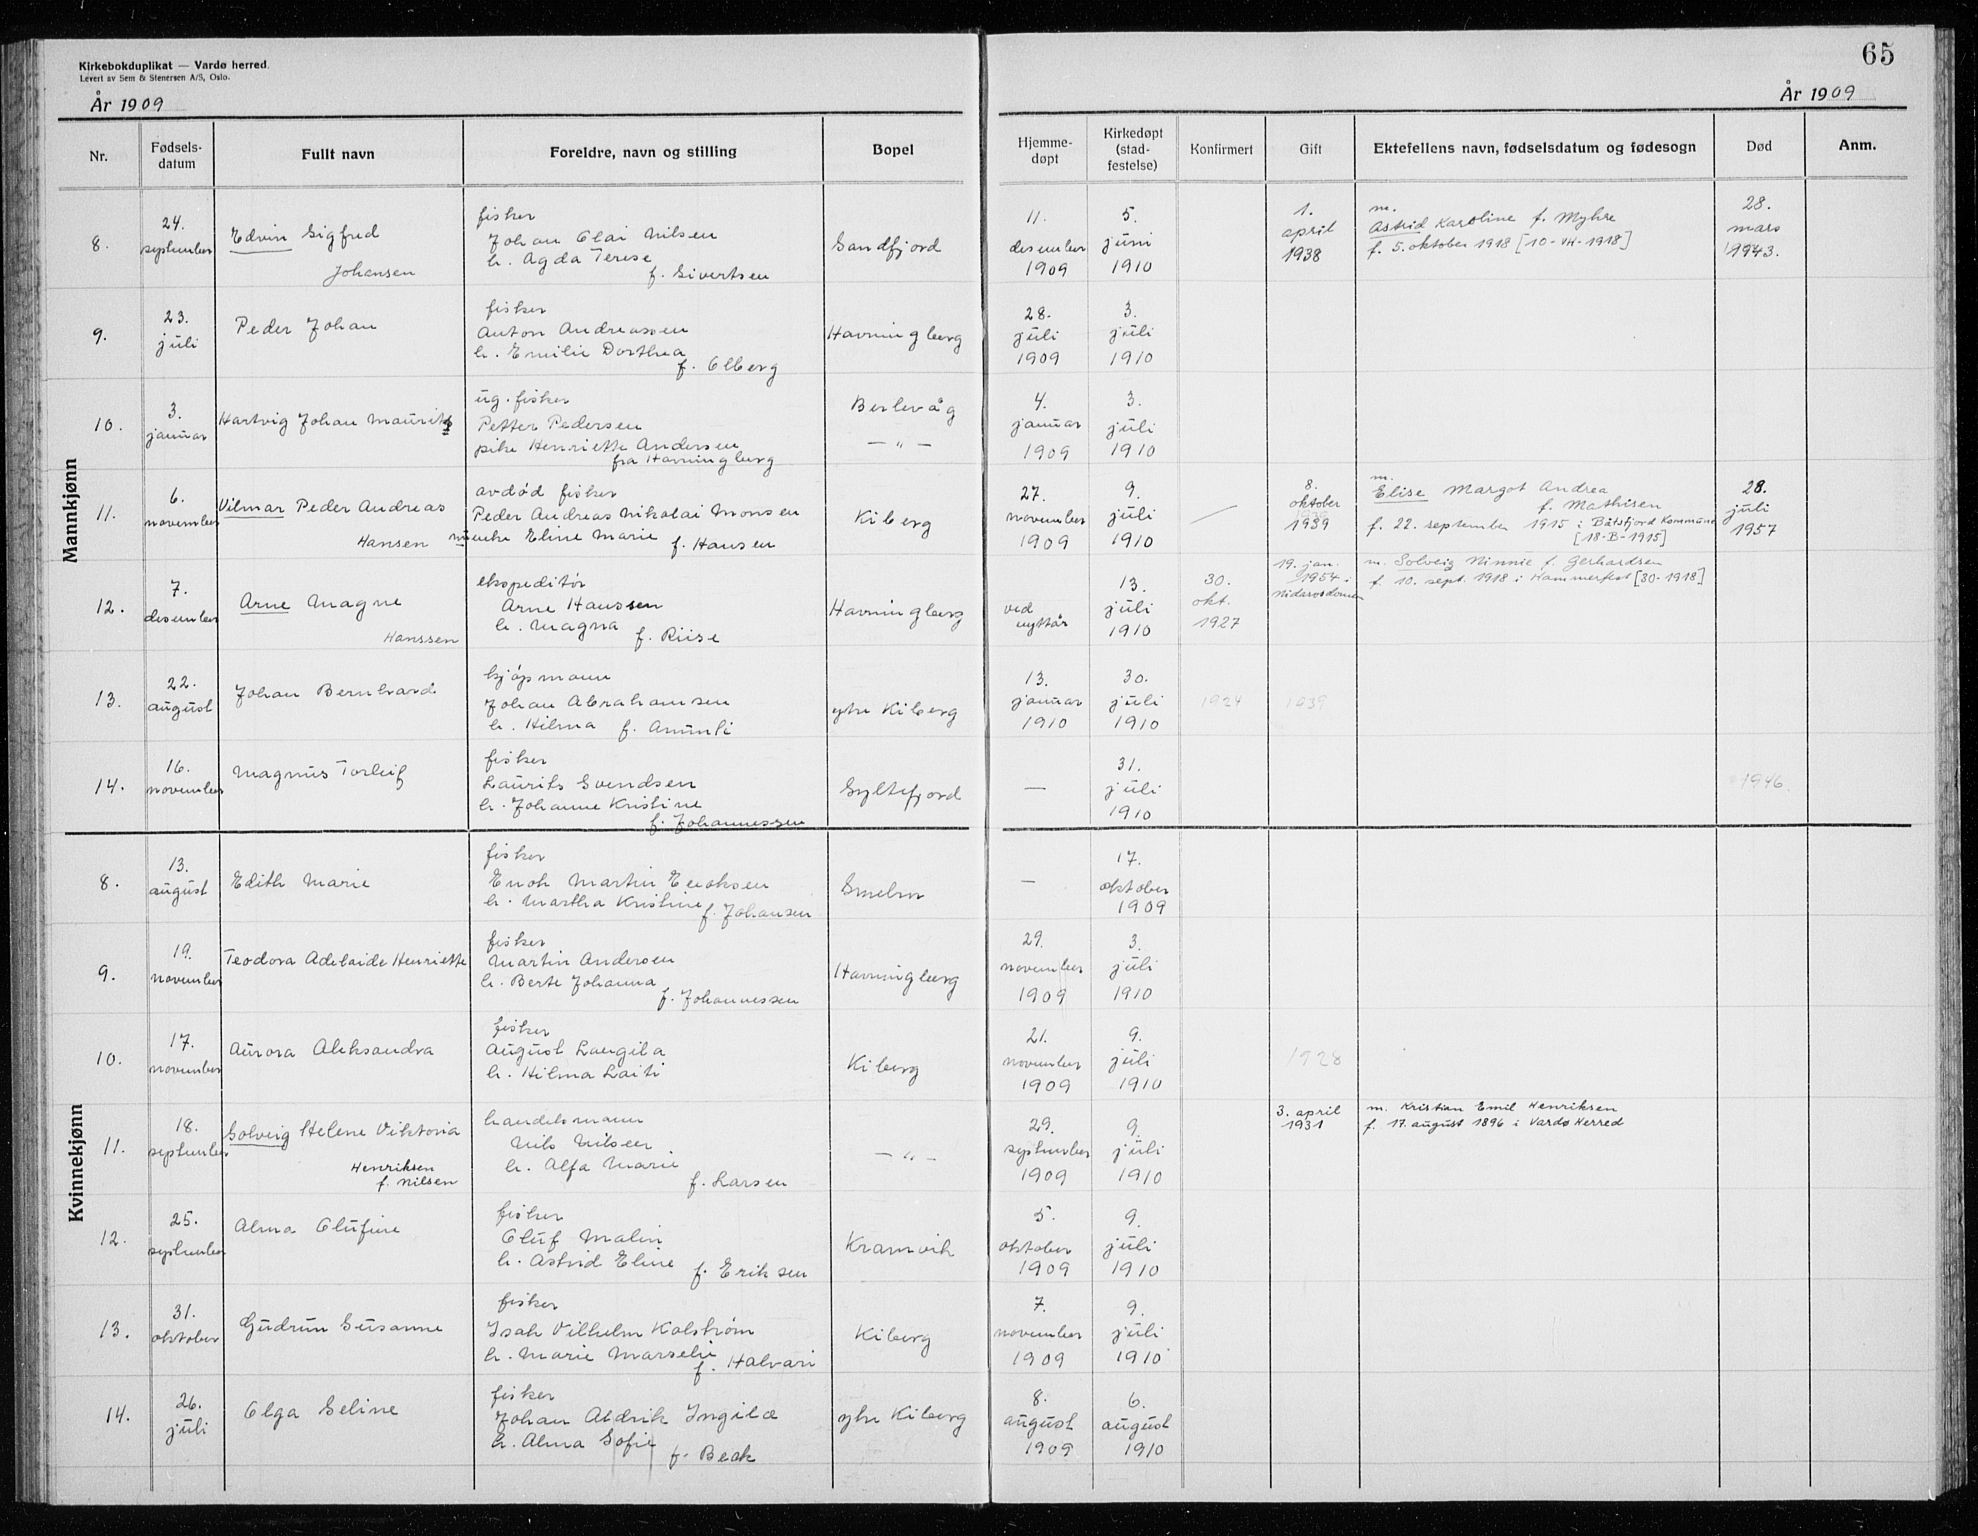 Kirkebokduplikat — Vardø herred.
Levert av Sem & Stenersen A/S, Oslo.
År 1909
65
År 1909
Nr. Fødsels-datum Fullt navn Foreldre, navn og stilling Bopel Hjemme-døpt Kirkedøpt (stad-festelse) Konfirmert Gift Ektefellens navn, fødselsdatum og fødesogn Død Anm.
Mannkjønn
8.
24.
september
Edvin Sigfred
Johansen
fisker
Johan Olai Nilsen
h. Agda Terese
f. Sivertsen
Sandfjord
11.
desember
1909
5.
juni
1910
1.
april
1938
m.
Astrid Karoline f. Myhre
f. 5. oktober 1918 [10-VH-1918]
28.
mars
1943.
9.
23.
juli
Peder Johan
fisker
Anton Andreassen
h. Emilie Dorthea
f. Olberg
Havningberg
28.
juli
1909
3.
juli
1910
10.
3.
januar
Hartvig Johan Maurits
ug. fisker
Petter Pedersen
pike Henriette Andersen
fra Havningberg
Berlevåg
— " —
4.
januar
1909
3.
juli
1910
11.
6.
november
Vilmar Peder Andreas
Hansen
avdød fisker
Peder Andreas Nikolai Monsen
enke Eline Marie f. Hansen
Kiberg
27.
november
1909
9.
juli
1910
—
8.
oktober
1939
m.
Elise Margot Andrea
f. Mathisen
f. 22. september 1915 i Båtsfjord Kommune
[18-B-1915]
28.
juli
1957
12.
7.
desember
Arne Magne
Hanssen
ekspeditør
Arne Hanssen
h. Magna f. Riise
Havningberg
ved
nyttår
13.
juli
1910
30.
okt.
1927
19. jan.
1954 i
Nidarosdomen
m. Solveig Ninnie f. Gerhardsen
f. 10. sept. 1918 i Hammerfest [30-1918]
13.
22.
august
Johan Bernhard
kjøpmann
Johan Abrahamsen
h. Hilma f. Anunti
ytre Kiberg
13.
januar
1910
30.
juli
1910
1924
1939
14.
16.
november
Magnus Torleif
fisker
Laurits Svendsen
h. Johanne Kristine
f. Johannessen
Syltefjord
—
31.
juli
1910
1946.
Kvinnekjønn
8.
13.
august
Edith Marie
fisker
Enok Martin Enoksen
h. Martha Kristine f. Johansen
Smelror
—
17.
oktober
1909
9.
19.
november
Teodora Adelaide Henriette
fisker
Martin Andersen
h. Berte Johanna
f. Johannessen
Havningberg
29.
november
1909
3.
juli
1910
10.
17.
november
Aurora Aleksandra
fisker
August Laugila
h. Hilma Laiti
Kiberg
21.
november
1909
9.
juli
1910
1928
11.
18.
september
Solveig Helene Viktoria
Henriksen
f. Nilsen
handelsmann
Nils Nilsen
h. Alfa Marie
f. Larsen
— " —
29.
september
1909
9.
juli
1910
3. april
1931
m. Kristian Emil Henriksen
f. 17. august 1896 i Vardø Herred
12.
25.
september
Alma Olufine
fisker
Oluf Malin
h. Astrid Eline
f. Eriksen
Kramvik
5.
oktober
1909
9.
juli
1910
13.
31.
oktober
Gudrun Susanne
fisker
Isak Vilhelm Kolstrøm
h. Marie Marselie
f. Halvari
Kiberg
7.
november
1909
9.
juli
1910
14.
26.
juli
Olga Seline
fisker
Johan Aldrik Ingilæ
h. Alma Sofie
f. Beck
ytre Kiberg
8.
august
1909
6.
august
1910